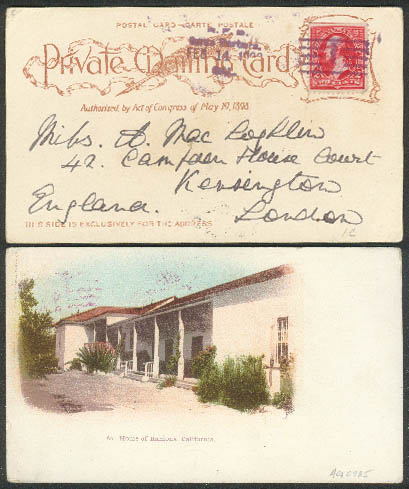 POSTAL CARD—CARTE POSTALE
Private Mailing Card
Authorized by Act of Congress of May 19, 1898
Miss A. Mac Loghlin
42. Campden House Court
Kensington
England. London
THIS SIDE IS EXCLUSIVELY FOR THE ADDRESS
1c
Home of Ramona, California.